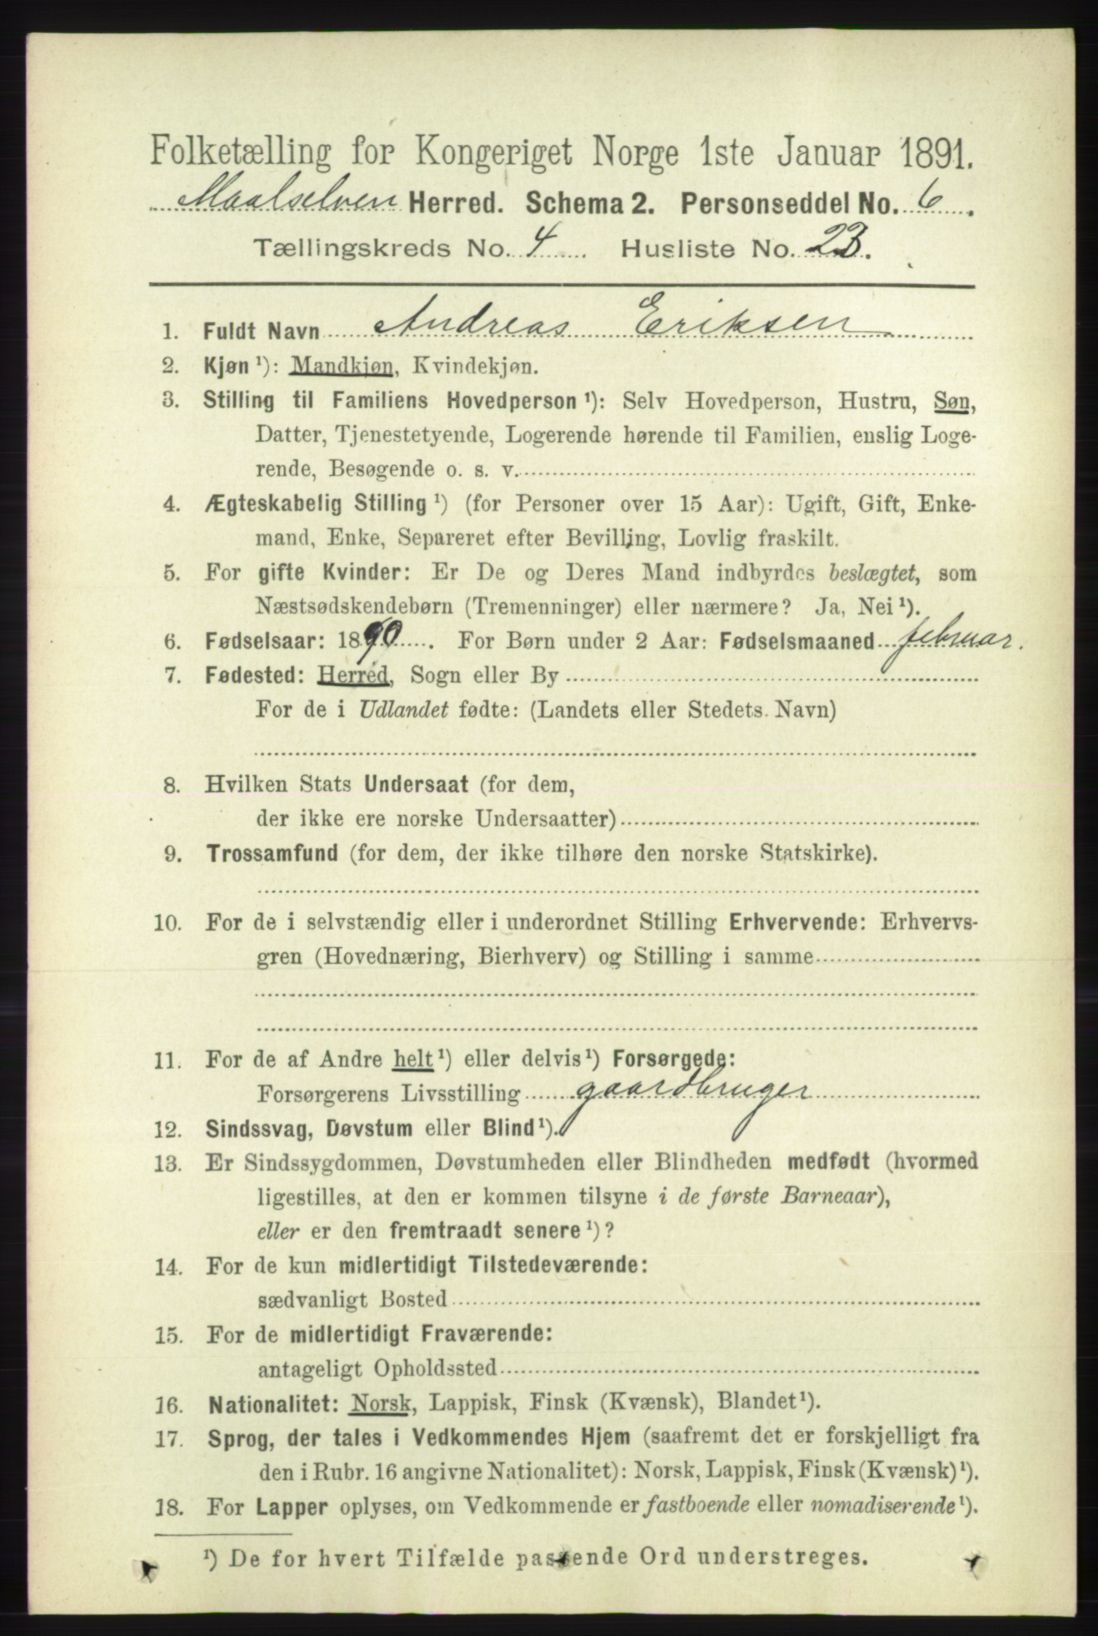 Folketælling for Kongeriget Norge 1ste Januar 1891.
Maalselven Herred. Schema 2. Personseddel No. 6.
Tællingskreds No. 4 Husliste No. 23.
1. Fuldt Navn Andreas Eriksen
2. Kjøn ¹): Mandkjøn, Kvindekjøn.
3. Stilling til Familiens Hovedperson ¹): Selv Hovedperson, Hustru, Søn,
Datter, Tjenestetyende, Logerende hørende til Familien, enslig Loge-
rende, Besøgende o. s. v.
4. Ægteskabelig Stilling ¹) (for Personer over 15 Aar): Ugift, Gift, Enke-
mand, Enke, Separeret efter Bevilling, Lovlig fraskilt.
5. For gifte Kvinder: Er De og Deres Mand indbyrdes beslægtet, som
Næstsødskendebørn (Tremenninger) eller nærmere? Ja, Nei ¹).
6. Fødselsaar: 1890. For Børn under 2 Aar: Fødselsmaaned februar.
7. Fødested: Herred, Sogn eller By
For de i Udlandet fødte: (Landets eller Stedets Navn)
8. Hvilken Stats Undersaat (for dem,
der ikke ere norske Undersaatter)
9. Trossamfund (for dem, der ikke tilhøre den norske Statskirke).
10. For de i selvstændig eller i underordnet Stilling Erhvervende: Erhvervs-
gren (Hovednæring, Bierhverv) og Stilling i samme
11. For de af Andre helt ¹) eller delvis ¹) Forsørgede:
Forsørgerens Livsstilling gaardbruger
12. Sindssvag, Døvstum eller Blind ¹).
13. Er Sindssygdommen, Døvstumheden eller Blindheden medfødt (hvormed
ligestilles, at den er kommen tilsyne i de første Barneaar),
eller er den fremtraadt senere ¹)?
14. For de kun midlertidigt Tilstedeværende:
sædvanligt Bosted
15. For de midlertidigt Fraværende:
antageligt Opholdssted
16. Nationalitet: Norsk, Lappisk, Finsk (Kvænsk), Blandet ¹).
17. Sprog, der tales i Vedkommendes Hjem (saafremt det er forskjelligt fra
den i Rubr. 16 angivne Nationalitet): Norsk, Lappisk, Finsk (Kvænsk) ¹).
18. For Lapper oplyses, om Vedkommende er fastboende eller nomadiserende ¹).
¹) De for hvert Tilfælde passende Ord understreges.